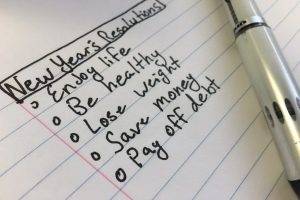 New Year's Resolutions!
Enjoy life
Be healthy
Lose weight
Save money
Pay off debt